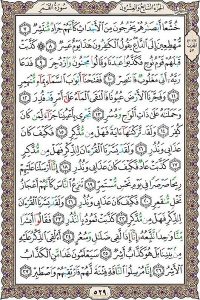 سُورَةُ القَمَر الجزء السابع والعشرون
خُشَّعًا أَبْصَٰرُهُمْ يَخْرُجُونَ مِنَ ٱلْأَجْدَاثِ كَأَنَّهُمْ جَرَادٌ مُّنتَشِرٌ ٧
مُّهْطِعِينَ إِلَى ٱلدَّاعِ يَقُولُ ٱلْكَٰفِرُونَ هَٰذَا يَوْمٌ عَسِرٌ ٨ كَذَّبَتْ
قَبْلَهُمْ قَوْمُ نُوحٍ فَكَذَّبُوا۟ عَبْدَنَا وَقَالُوا۟ مَجْنُونٌ وَٱزْدُجِرَ ٩ فَدَعَا
رَبَّهُۥٓ أَنِّى مَغْلُوبٌ فَٱنتَصِرْ ١٠ فَفَتَحْنَآ أَبْوَٰبَ ٱلسَّمَآءِ بِمَآءٍ مُّنْهَمِرٍ ١١
وَفَجَّرْنَا ٱلْأَرْضَ عُيُونًا فَٱلْتَقَى ٱلْمَآءُ عَلَىٰٓ أَمْرٍ قَدْ قُدِرَ ١٢
وَحَمَلْنَٰهُ عَلَىٰ ذَاتِ أَلْوَٰحٍ وَدُسُرٍ ١٣ تَجْرِى بِأَعْيُنِنَا جَزَآءً لِّمَن كَانَ
كُفِرَ ١٤ وَلَقَد تَّرَكْنَٰهَآ ءَايَةً فَهَلْ مِن مُّدَّكِرٍ ١٥ فَكَيْفَ كَانَ
عَذَابِى وَنُذُرِ ١٦ وَلَقَدْ يَسَّرْنَا ٱلْقُرْءَانَ لِلذِّكْرِ فَهَلْ مِن مُّدَّكِرٍ ١٧
كَذَّبَتْ عَادٌ فَكَيْفَ كَانَ عَذَابِى وَنُذُرِ ١٨ إِنَّآ أَرْسَلْنَا عَلَيْهِمْ
رِيحًا صَرْصَرًا فِى يَوْمِ نَحْسٍ مُّسْتَمِرٍّ ١٩ تَنزِعُ ٱلنَّاسَ كَأَنَّهُمْ أَعْجَازُ
نَخْلٍ مُّنقَعِرٍ ٢٠ فَكَيْفَ كَانَ عَذَابِى وَنُذُرِ ٢١ وَلَقَدْ يَسَّرْنَا ٱلْقُرْءَانَ
لِلذِّكْرِ فَهَلْ مِن مُّدَّكِرٍ ٢٢ كَذَّبَتْ ثَمُودُ بِٱلنُّذُرِ ٢٣ فَقَالُوٓا۟ أَبَشَرًا
مِّنَّا وَٰحِدًا نَّتَّبِعُهُۥٓ إِنَّآ إِذًا لَّفِى ضَلَٰلٍ وَسُعُرٍ ٢٤ أَءُلْقِىَ ٱلذِّكْرُ عَلَيْهِ
مِنۢ بَيْنِنَا بَلْ هُوَ كَذَّابٌ أَشِرٌ ٢٥ سَيَعْلَمُونَ غَدًا مَّنِ ٱلْكَذَّابُ
ٱلْأَشِرُ ٢٦ إِنَّا مُرْسِلُوا۟ ٱلنَّاقَةِ فِتْنَةً لَّهُمْ فَٱرْتَقِبْهُمْ وَٱصْطَبِرْ ٢٧
٥٢٩